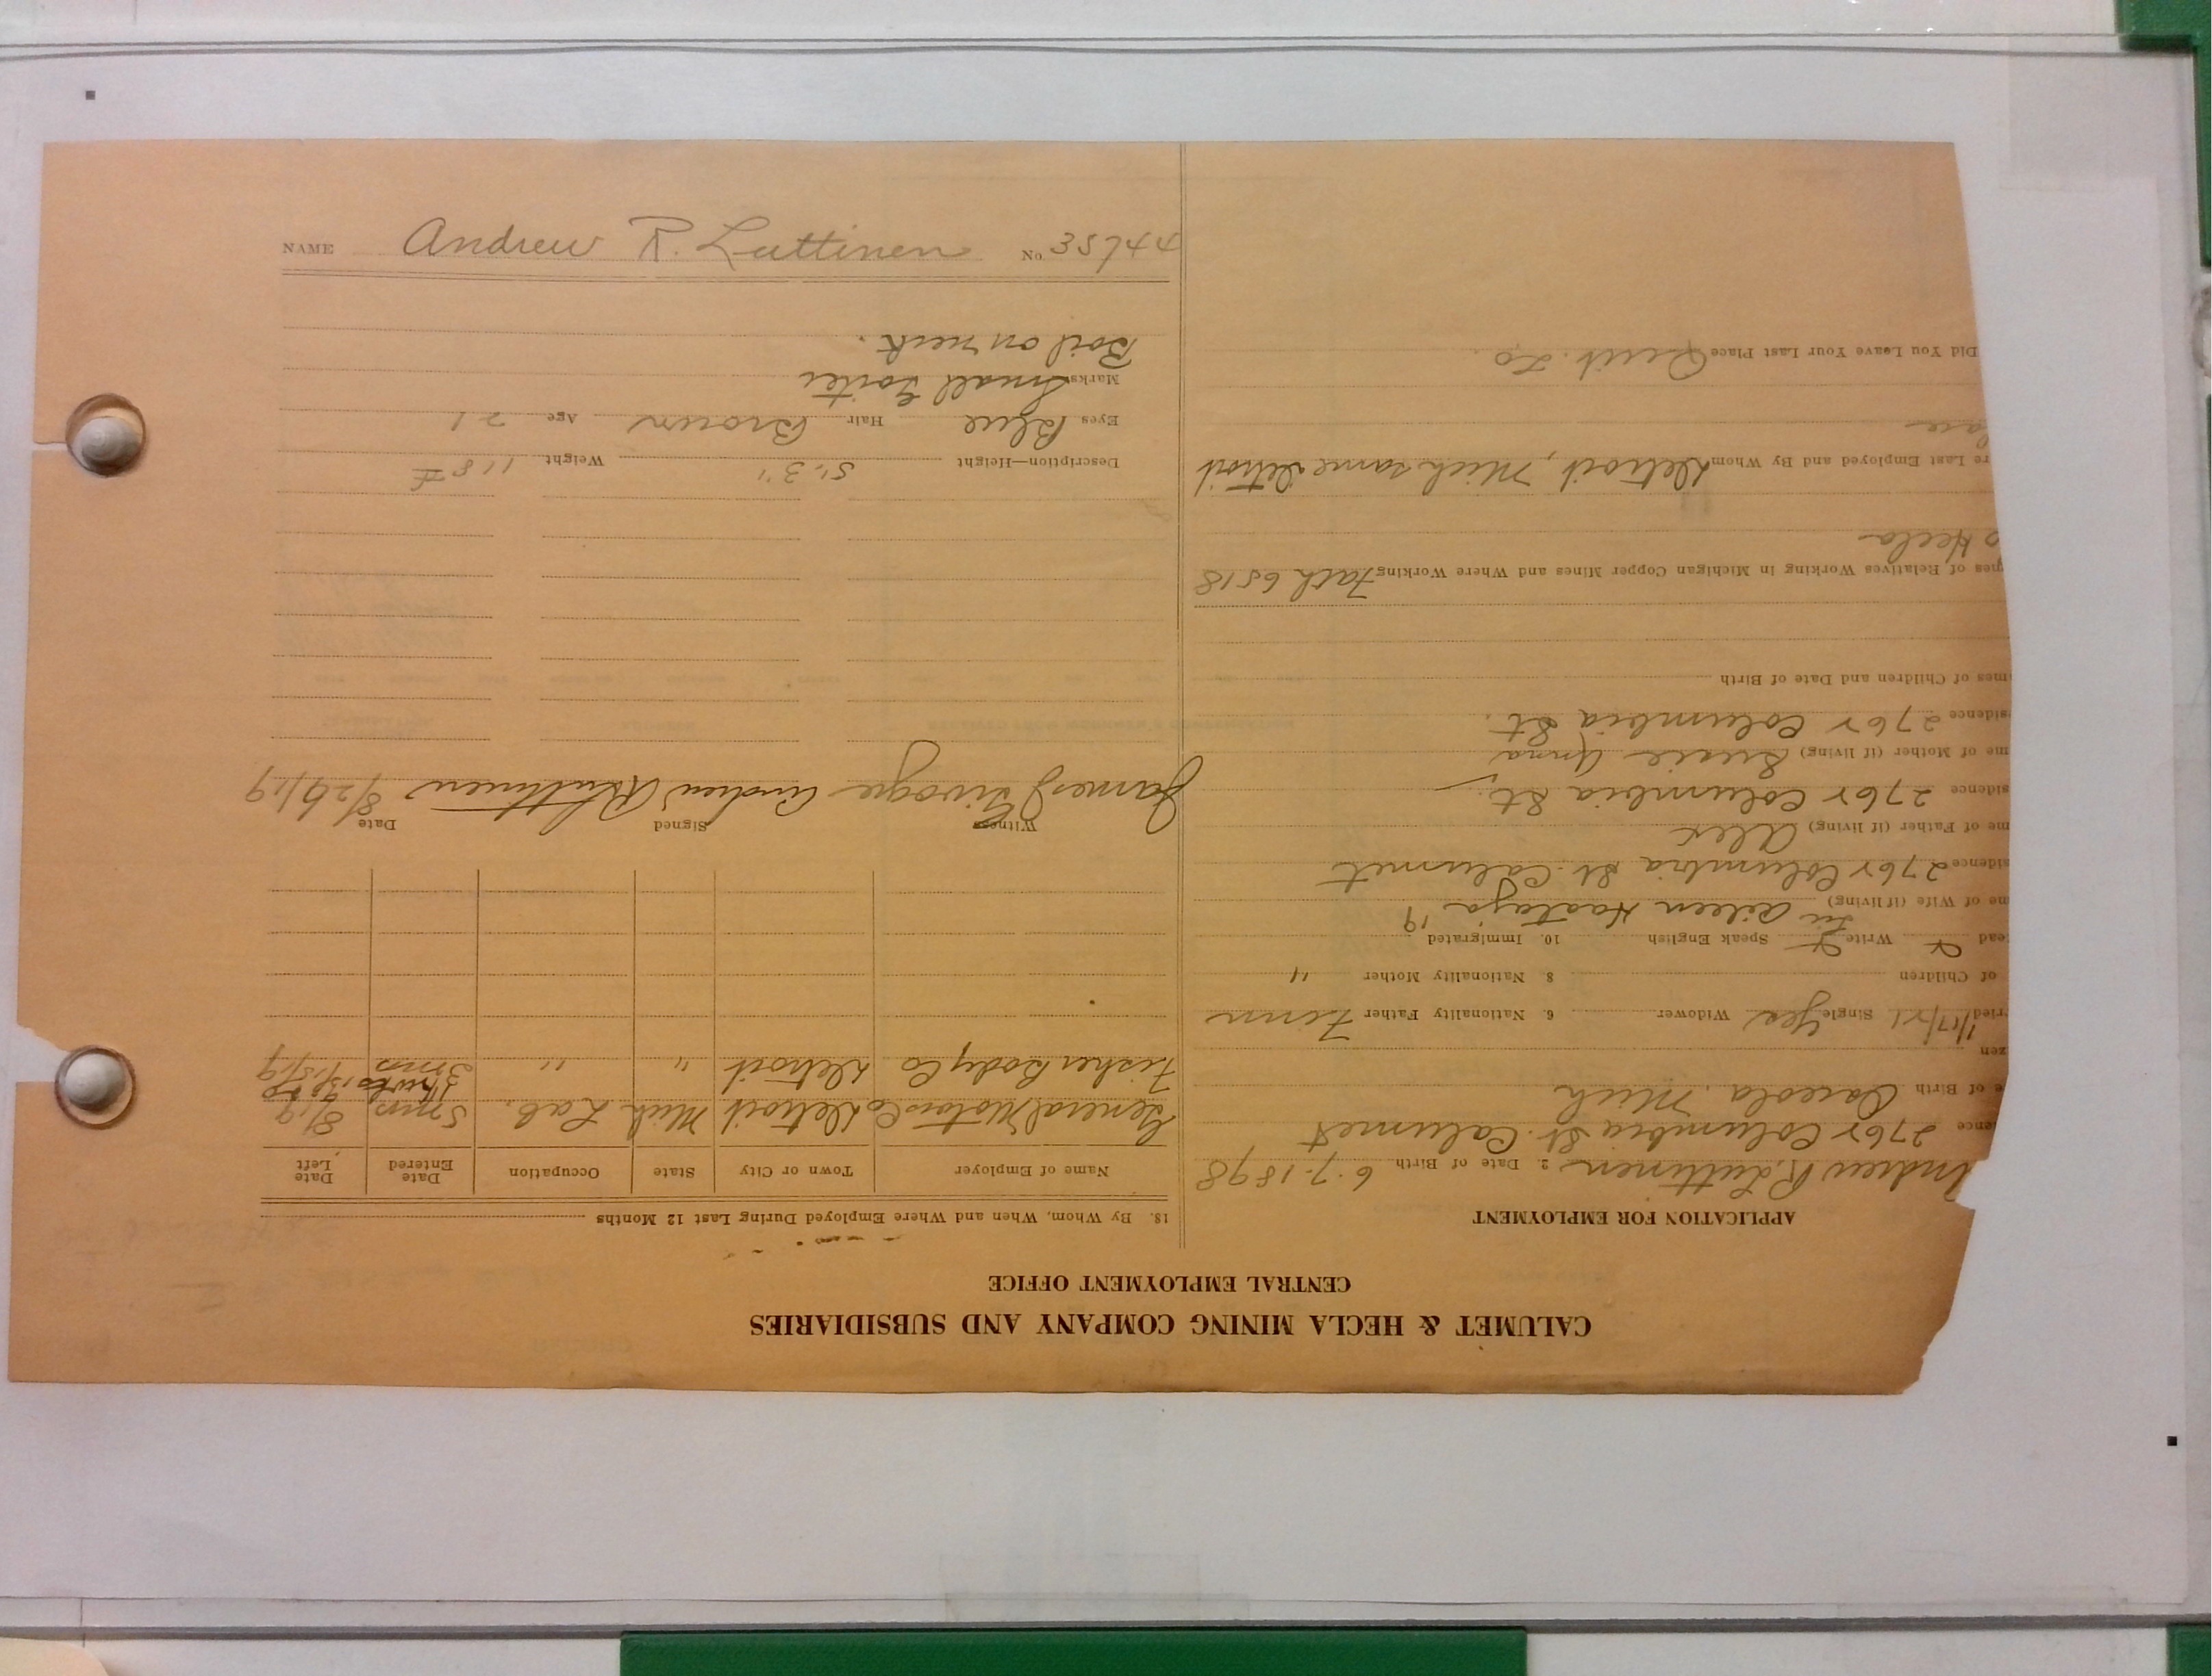 CALUMET & HECLA MINING COMPANY AND SUBSIDIARIES
CENTRAL EMPLOYMENT OFFICE
APPLICATION FOR EMPLOYMENT
Andrew R. Luttinen 2. Date of Birth 6-7-1898
ence 2762 Columbia St. Calumet
e of Birth Osceola, Mich
zen
ried 1/17/21 Single Yes Widower 6. Nationality Father Finn
of Children 8 Nationality Mother "
ead Write Speak English 10. Immigrated
me of Wife (if living) Aileen Haataja 19
sidence 2762 Columbia St. Calumet
me of Father (if living) Alex
sidence 2762 Columbia St.
me of Mother (if living) Susie Anna
sidence 2762 Columbia St.
mes of Children and Date of Birth
mes of Relatives Working in Michigan Copper Mines and Where Working Fath 6518
o Hecla
re Last Employed and By Whom Detroit, Mich same Detroit
lace
Did You Leave Your Last Place Quit
18. By Whom, When and Where Employed During Last 12 Months
Name of Employer Town or City State Occupation Date Entered Date Left
General Motors Co Detroit Mich Lab. 5 mos 8/19
Fisher Body Co Detroit " " 3 mos
Witness Signed Date
James Andrew R Luttinen 8/26/19
Description—Height 5'.3" Weight 118 #
Eyes Blue Hair Brown Age 21
Marks Small Goiter
Boil on neck.
NAME Andrew R. Luttinen No. 35744